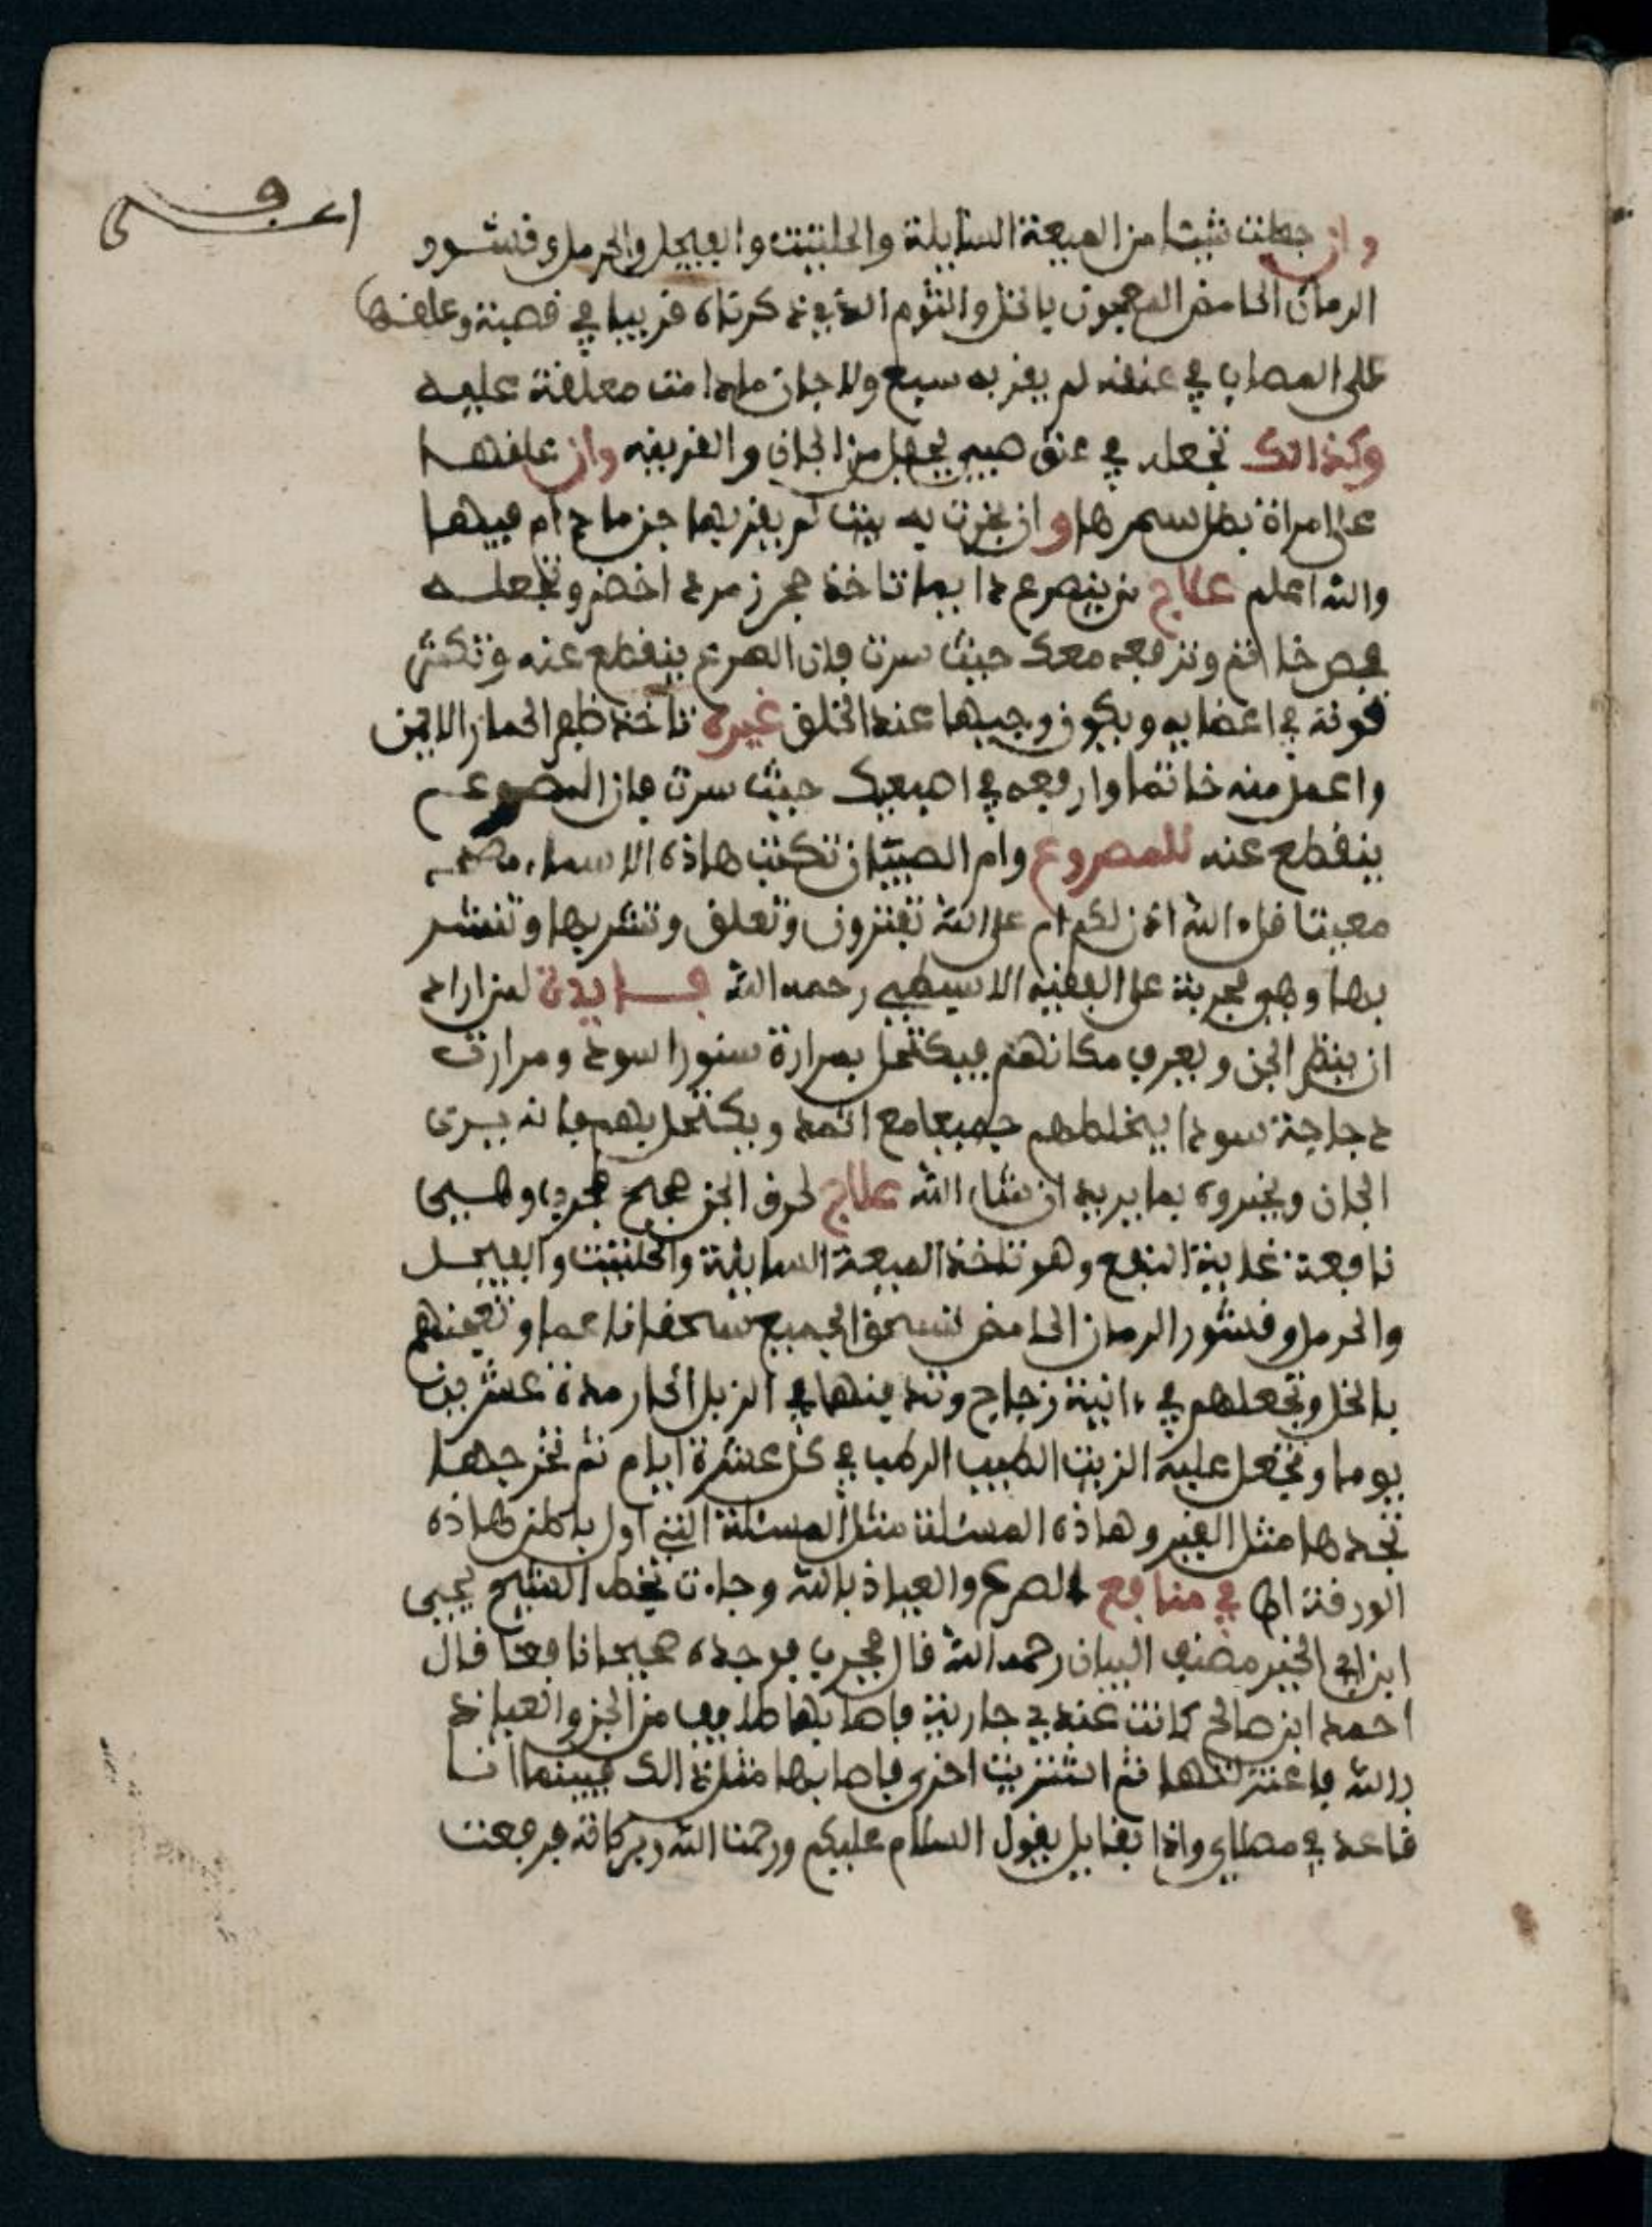 وان جعلت شيئا من الميعة السايلة والحلتيت والفيجل والحرمل وقشور
الرمان الحامض المعجون بالخل والثوم الذي ذكرناه قريبا في قصبة وعلقها
على المصاب في عنقه لم يقربه سبع ولا جان ما دامت معلقة عليه
وكذالك تجعله في عنق صبي يحفظ من الجان والقرينة وان علقها
على امراة بطل سحرها وان بخرت به بيت لم يقربها جن ما دام فيها
والله اعلم علاج من ينصرع دايما تاخذ حجر زمرد اخضر وتجعله
فص خاتم وترفعه معك حيث سرت فان الصرع ينقطع عنه وتكثر
قوته في اعضايه ويكون وجيها عند الخلق غيره تاخذ ظفر الحمار الايمن
واعمل منه خاتما وارفعه في اصبعك حيث سرت فان الصرع
ينقطع عنه للمصروع وام الصبيان تكتب هاذه الاسماء
قل ءالله اذن لكم ام على الله تفترون وتعلق وتشربها وتنشر
بها وهو مجربة على الفقيه رحمه الله فايدة لمن اراد
ان ينظر الجن ويعرف مكانهم فيكتحل بمرارة سنور اسود ومرارت
دجاجة سودا يخلطهم جميعا مع اثمد ويكتحل بهم فانه يرى
الجان ويخبروه بما يريد ان شاء الله علاج لحرق الجن صحيح مجرب وهي
نافعة غاية النفع وهو تاخذ الميعة السايلة والحلتيت والفيجل
والحرمل وقشور الرمان الحامض تسحق الجميع سحقا ناعما وتعجنهم
بالخل وتجعلهم في ءانية زجاج وتدفنها في الزبل الحار مدة عشرين
يوما وتجعل عليه الزيت الطيب الرطب في كل عشرة ايام ثم تخرجها
تجدها مثل القير وهاذه المسئلة مثل المسئلة التي اول باطن هاذه
الورقة اها في منافع الصرع والعياذ بالله وجاءت بخط الشيخ يحيى
ابن ابي الخير مصنف البيان رحمه الله قال مجرب فوجده صحيحا نافعا قال
احمد ابن صالح كانت عندي جارية فاصابها طايف من الجن والعياذ
بالله فاعتزلتها ثم اشتريت اخرى فاصابها مثل ذالك فبينما انا
قاعد في مصلاي واذا بقايل يقول السلام عليكم ورحمت الله وبركاته فرجعت